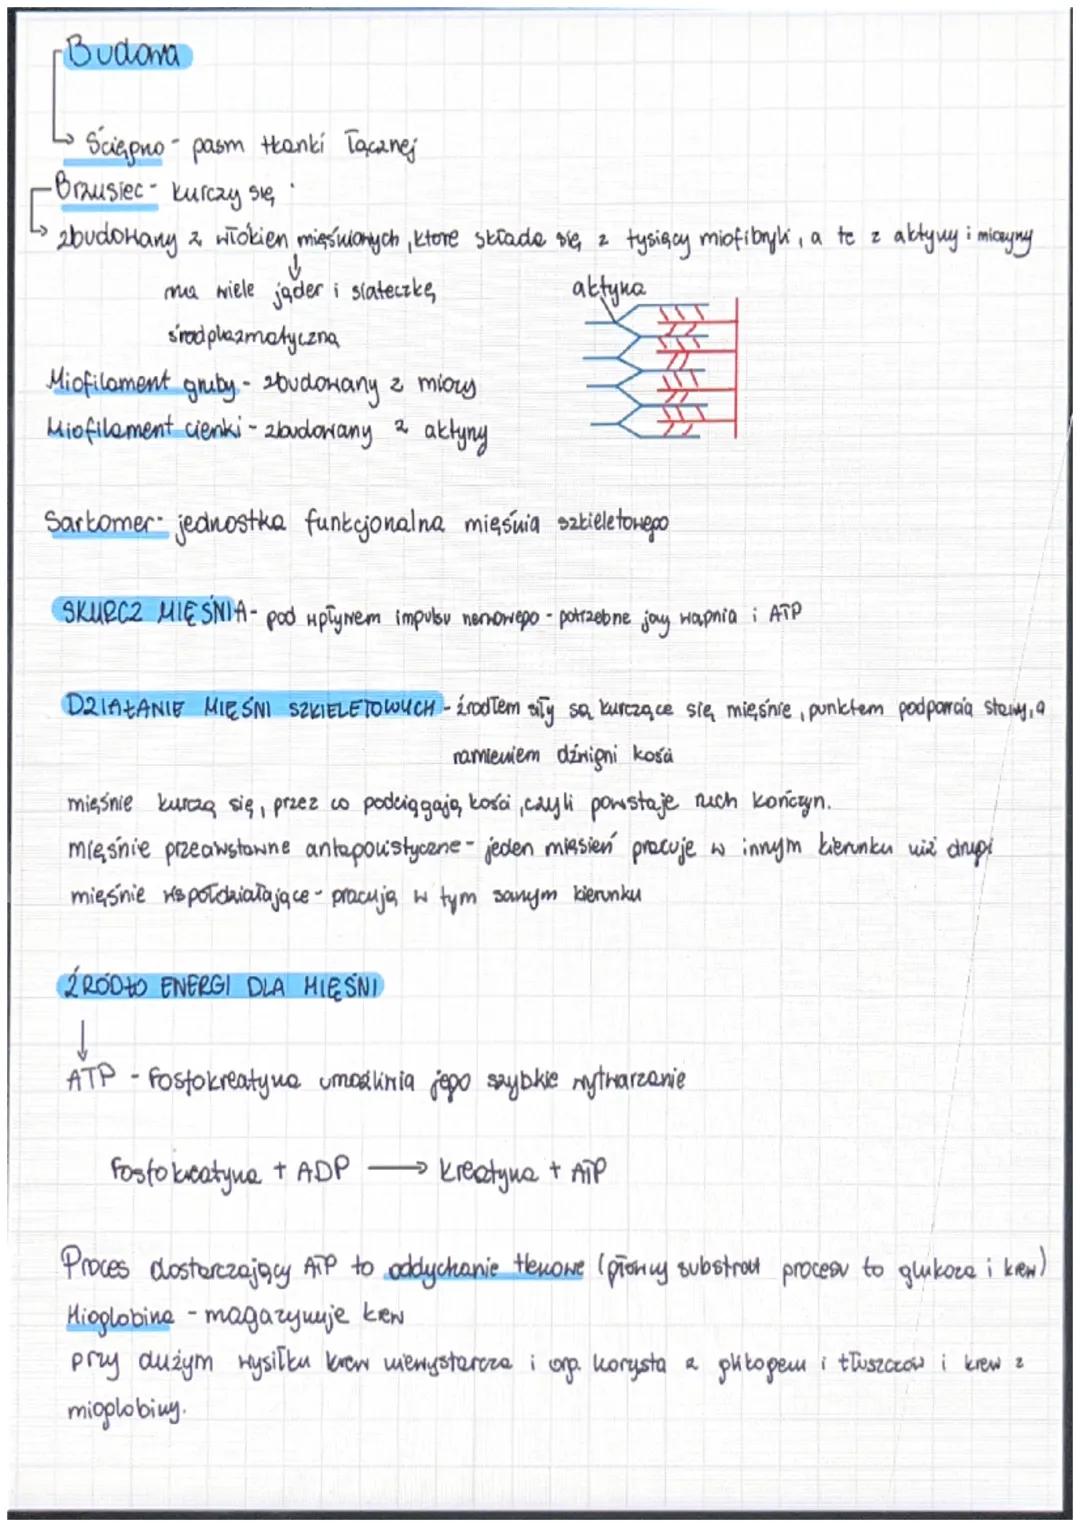 Budowa
Ścięgno - pasm tkanki łącznej
Brzusiec - kurczy się
zbudowany z włókien mięśniowych, które składa się z tysięcy miofibryli, a te z aktyny i miozyny
ma wiele jąder i siateczkę
śródplazmatyczną
aktyna
Miofilament gruby - zbudowany z miozy
Miofilament cienki - zbudowany z aktyny
Sarkomer - jednostka funkcjonalna mięśnia szkieletowego
SKURCZ MIĘŚNIA - pod wpływem impulsu nerwowego - potrzebne jony wapnia i ATP
DZIAŁANIE MIĘŚNI SZKIELETOWYCH - źródłem siły są kurczące się mięśnie, punktem podparcia stawy, a
ramieniem dźwigni kości
mięśnie kurczą się, przez co podciągają kości, czyli powstaje ruch kończyn.
mięśnie przeciwstawne antagonistyczne - jeden mięsień pracuje w innym kierunku niż drugi
mięśnie współdziałające - pracują w tym samym kierunku
ŹRÓDŁO ENERGI DLA MIĘŚNI
ATP - Fosfokreatyna umożliwia jego szybkie wytwarzanie
Fosfokreatyna + ADP → kreatyna + ATP
Proces dostarczający ATP to oddychanie tlenowe (główny substrat procesu to glukoza i krew)
Mioglobina - magazynuje krew
przy dużym wysiłku krew niewystarcza i org. korzysta z glikogenu i tłuszczów i krew z
mioglobiny.